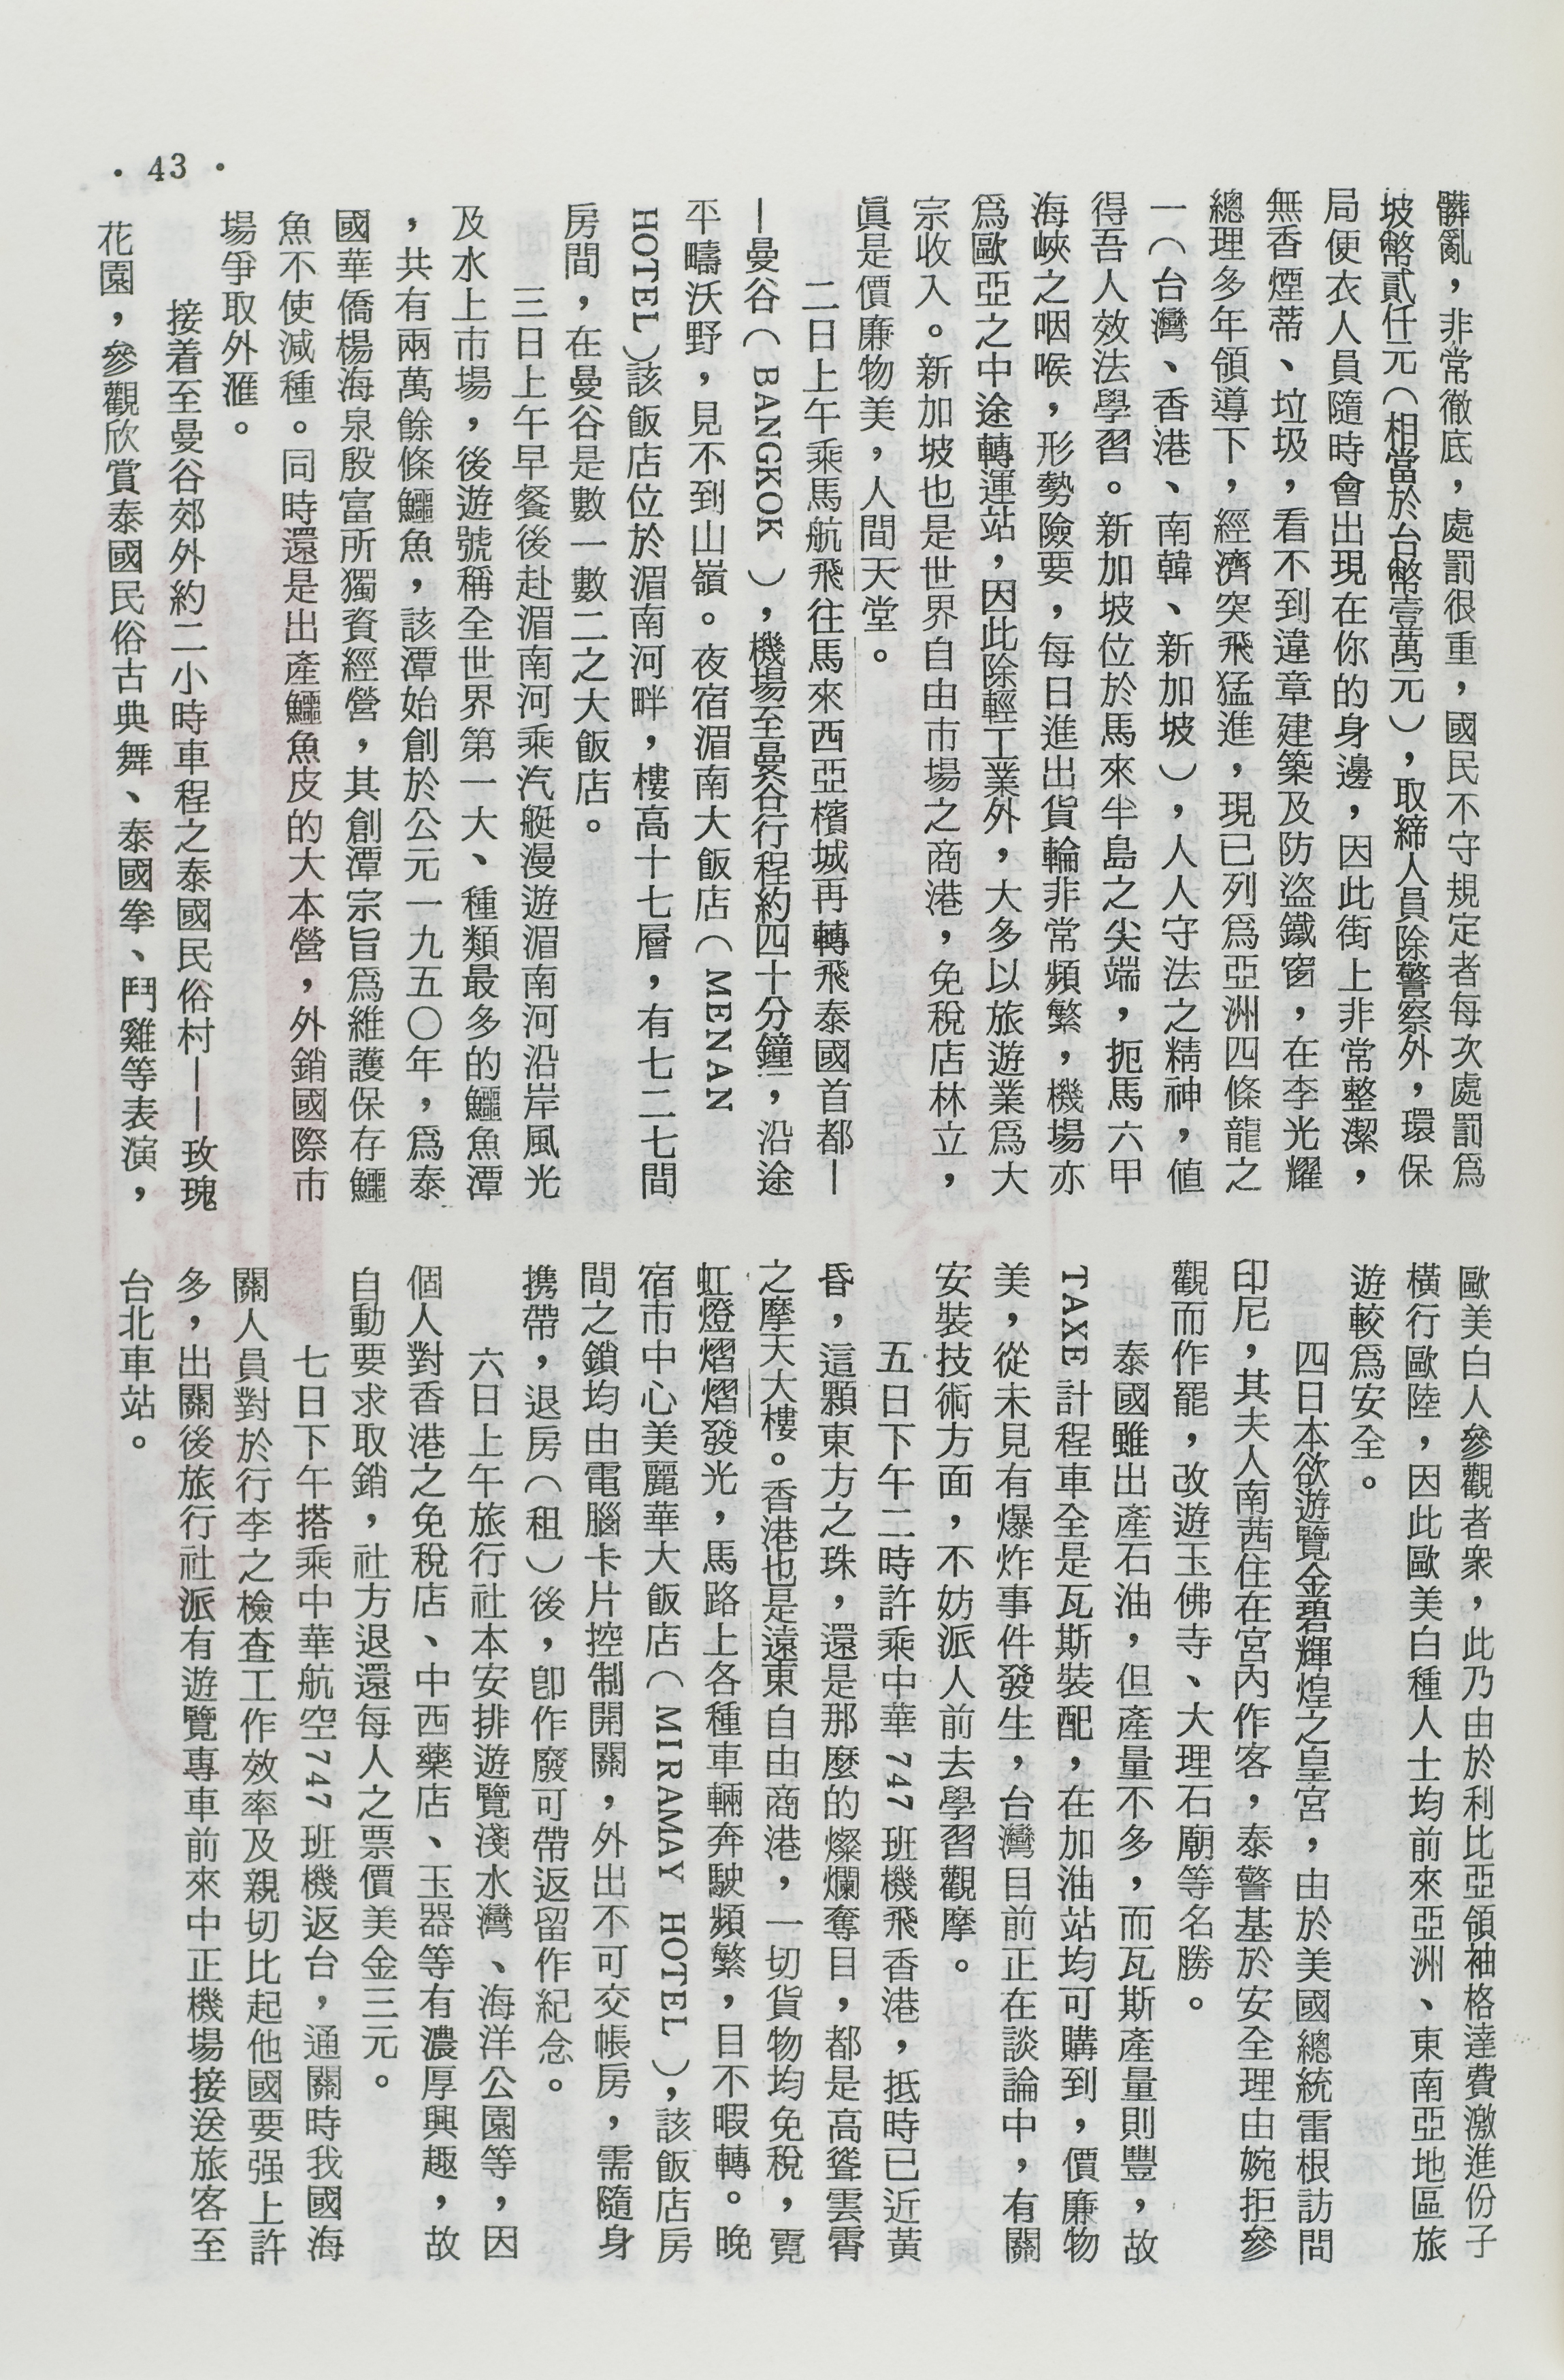 髒亂，非常徹底，處罰很重，國民不守規定者每次處罰爲
坡幣貳仟元（相當於台幣壹萬元），取締人員除警察外，環保
局便衣人員隨時會出現在你的身邊，因此街上非常整潔，
無香煙蒂、垃圾，看不到違章建築及防盜鐵窗，在李光耀
總理多年領導下，經濟突飛猛進，現已列爲亞洲四條龍之
一（台灣、香港、南韓、新加坡），人人守法之精神，值
得吾人效法學習。新加坡位於馬來半島之尖端，扼馬六甲
海峽之咽喉，形勢險要，每日進出貨輪非常頻繁，機場亦
爲歐亞之中途轉運站，因此除輕工業外，大多以旅遊業爲大
宗收入。新加坡也是世界自由市場之商港，免稅店林立，
眞是價廉物美，人間天堂。
二日上午乘馬航飛往馬來西亞檳城再轉飛泰國首都—
—曼谷（BANGKOK），機場至曼谷行程約四十分鐘，沿途
平疇沃野，見不到山嶺。夜宿湄南大飯店（MENAN
HOTEL）該飯店位於湄南河畔，樓高十七層，有七二七間
房間，在曼谷是數一數二之大飯店。
三日上午早餐後赴湄南河乘汽艇漫遊湄南河沿岸風光
及水上市場，後遊號稱全世界第一大、種類最多的鱷魚潭
，共有兩萬餘條鱷魚，該潭始創於公元一九五〇年，爲泰
國華僑楊海泉殷富所獨資經營，其創潭宗旨爲維護保存鱷
魚不使減種。同時還是出產鱷魚皮的大本營，外銷國際市
場爭取外滙。
接着至曼谷郊外約二小時車程之泰國民俗村——玫瑰
花園，參觀欣賞泰國民俗古典舞、泰國拳、鬥雞等表演，
歐美白人參觀者衆，此乃由於利比亞領袖格達費激進份子
橫行歐陸，因此歐美白種人士均前來亞洲、東南亞地區旅
遊較爲安全。
四日本欲遊覽金碧輝煌之皇宮，由於美國總統雷根訪問
印尼，其夫人南茜住在宮內作客，泰警基於安全理由婉拒參
觀而作罷，改遊玉佛寺、大理石廟等名勝。
泰國雖出產石油，但產量不多，而瓦斯產量則豐，故
TAXE計程車全是瓦斯裝配，在加油站均可購到，價廉物
美，從未見有爆炸事件發生，台灣目前正在談論中，有關
安裝技術方面，不妨派人前去學習觀摩。
五日下午二時許乘中華747班機飛香港，抵時已近黃
昏，這顆東方之珠，還是那麼的燦爛奪目，都是高聳雲霄
之摩天大樓。香港也是遠東自由商港，一切貨物均免稅，霓
虹燈熠熠發光，馬路上各種車輛奔駛頻繁，目不暇轉。晚
宿市中心美麗華大飯店（MIRAMAY HOTEL），該飯店房
間之鎖均由電腦卡片控制開關，外出不可交帳房，需隨身
携帶，退房（租）後，卽作廢可帶返留作紀念。
六日上午旅行社本安排遊覽淺水灣、海洋公園等，因
個人對香港之免稅店、中西藥店、玉器等有濃厚興趣，故
自動要求取銷，社方退還每人之票價美金三元。
七日下午搭乘中華航空747班機返台，通關時我國海
關人員對於行李之檢查工作效率及親切比起他國要强上許
多，出關後旅行社派有遊覽專車前來中正機場接送旅客至
台北車站。
• 43 •